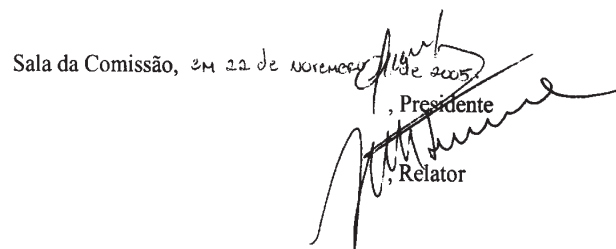 Sala da Comissão, em 22 de novembro de 2005.
, Presidente
, Relator